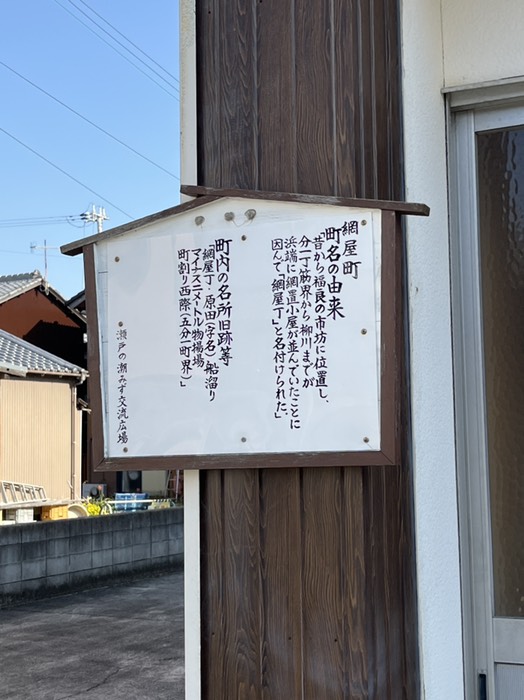 網屋町
町名の由来
「昔から福良の市坊に位置し、
分一丁筋界から柳川までが
浜端に網置小屋が並んでいたことに
因んで、網屋丁」と名付けられた。」
町内の名所旧跡等
「網屋丁・原田(字名)船溜り
マイナス二メートル物場場
町割り西際(五分一町界)」
瀬戸の潮みず交流広場